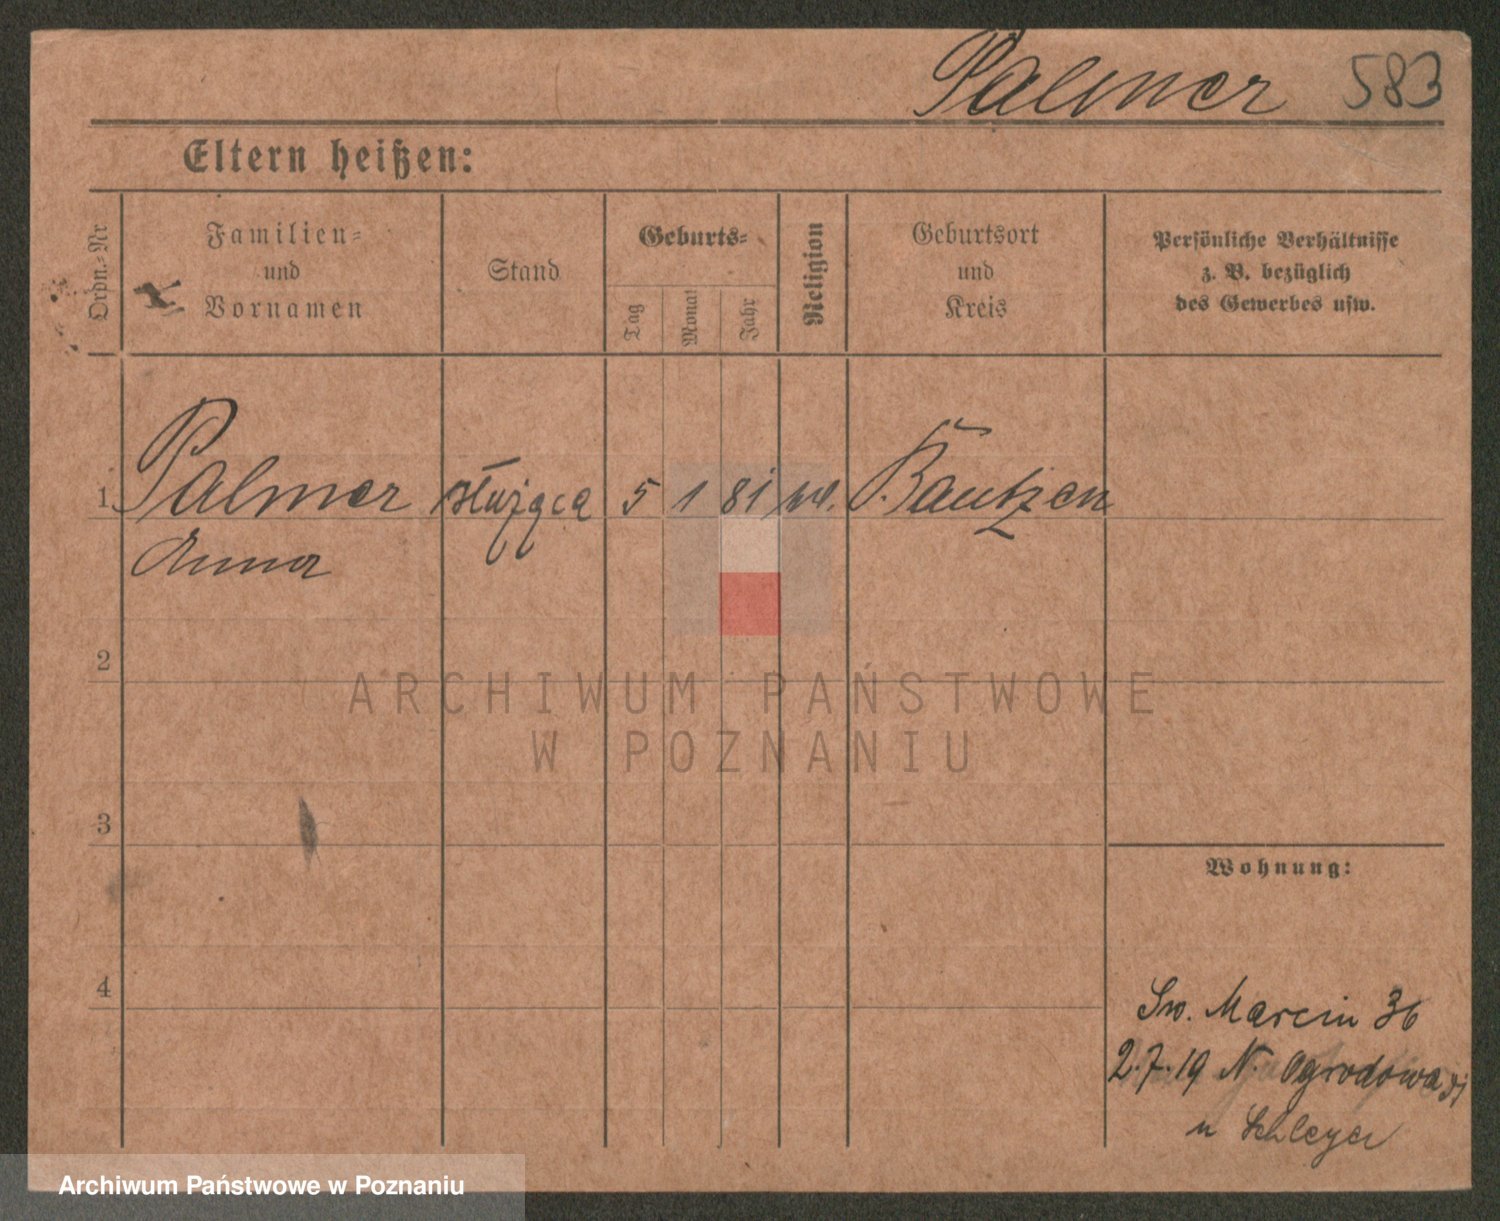 Palmer 583
Eltern heißen:
Ordn.-Nr
Familien-
und
Vornamen
Stand
Geburts-
Tag
Monat
Jahr
Religion
Geburtsort
und
Kreis
Persönliche Verhältnisse
z. B. bezüglich
des Gewerbes usw.
1 Palmer służąca 5 1 81 Bautzen
Anna
2
3
4
Wohnung:
Św. Marcin 36
2.7.19 N. Ogrodowa
u Schleyer
ARCHIWUM PAŃSTWOWE
W POZNANIU
Archiwum Państwowe w Poznaniu